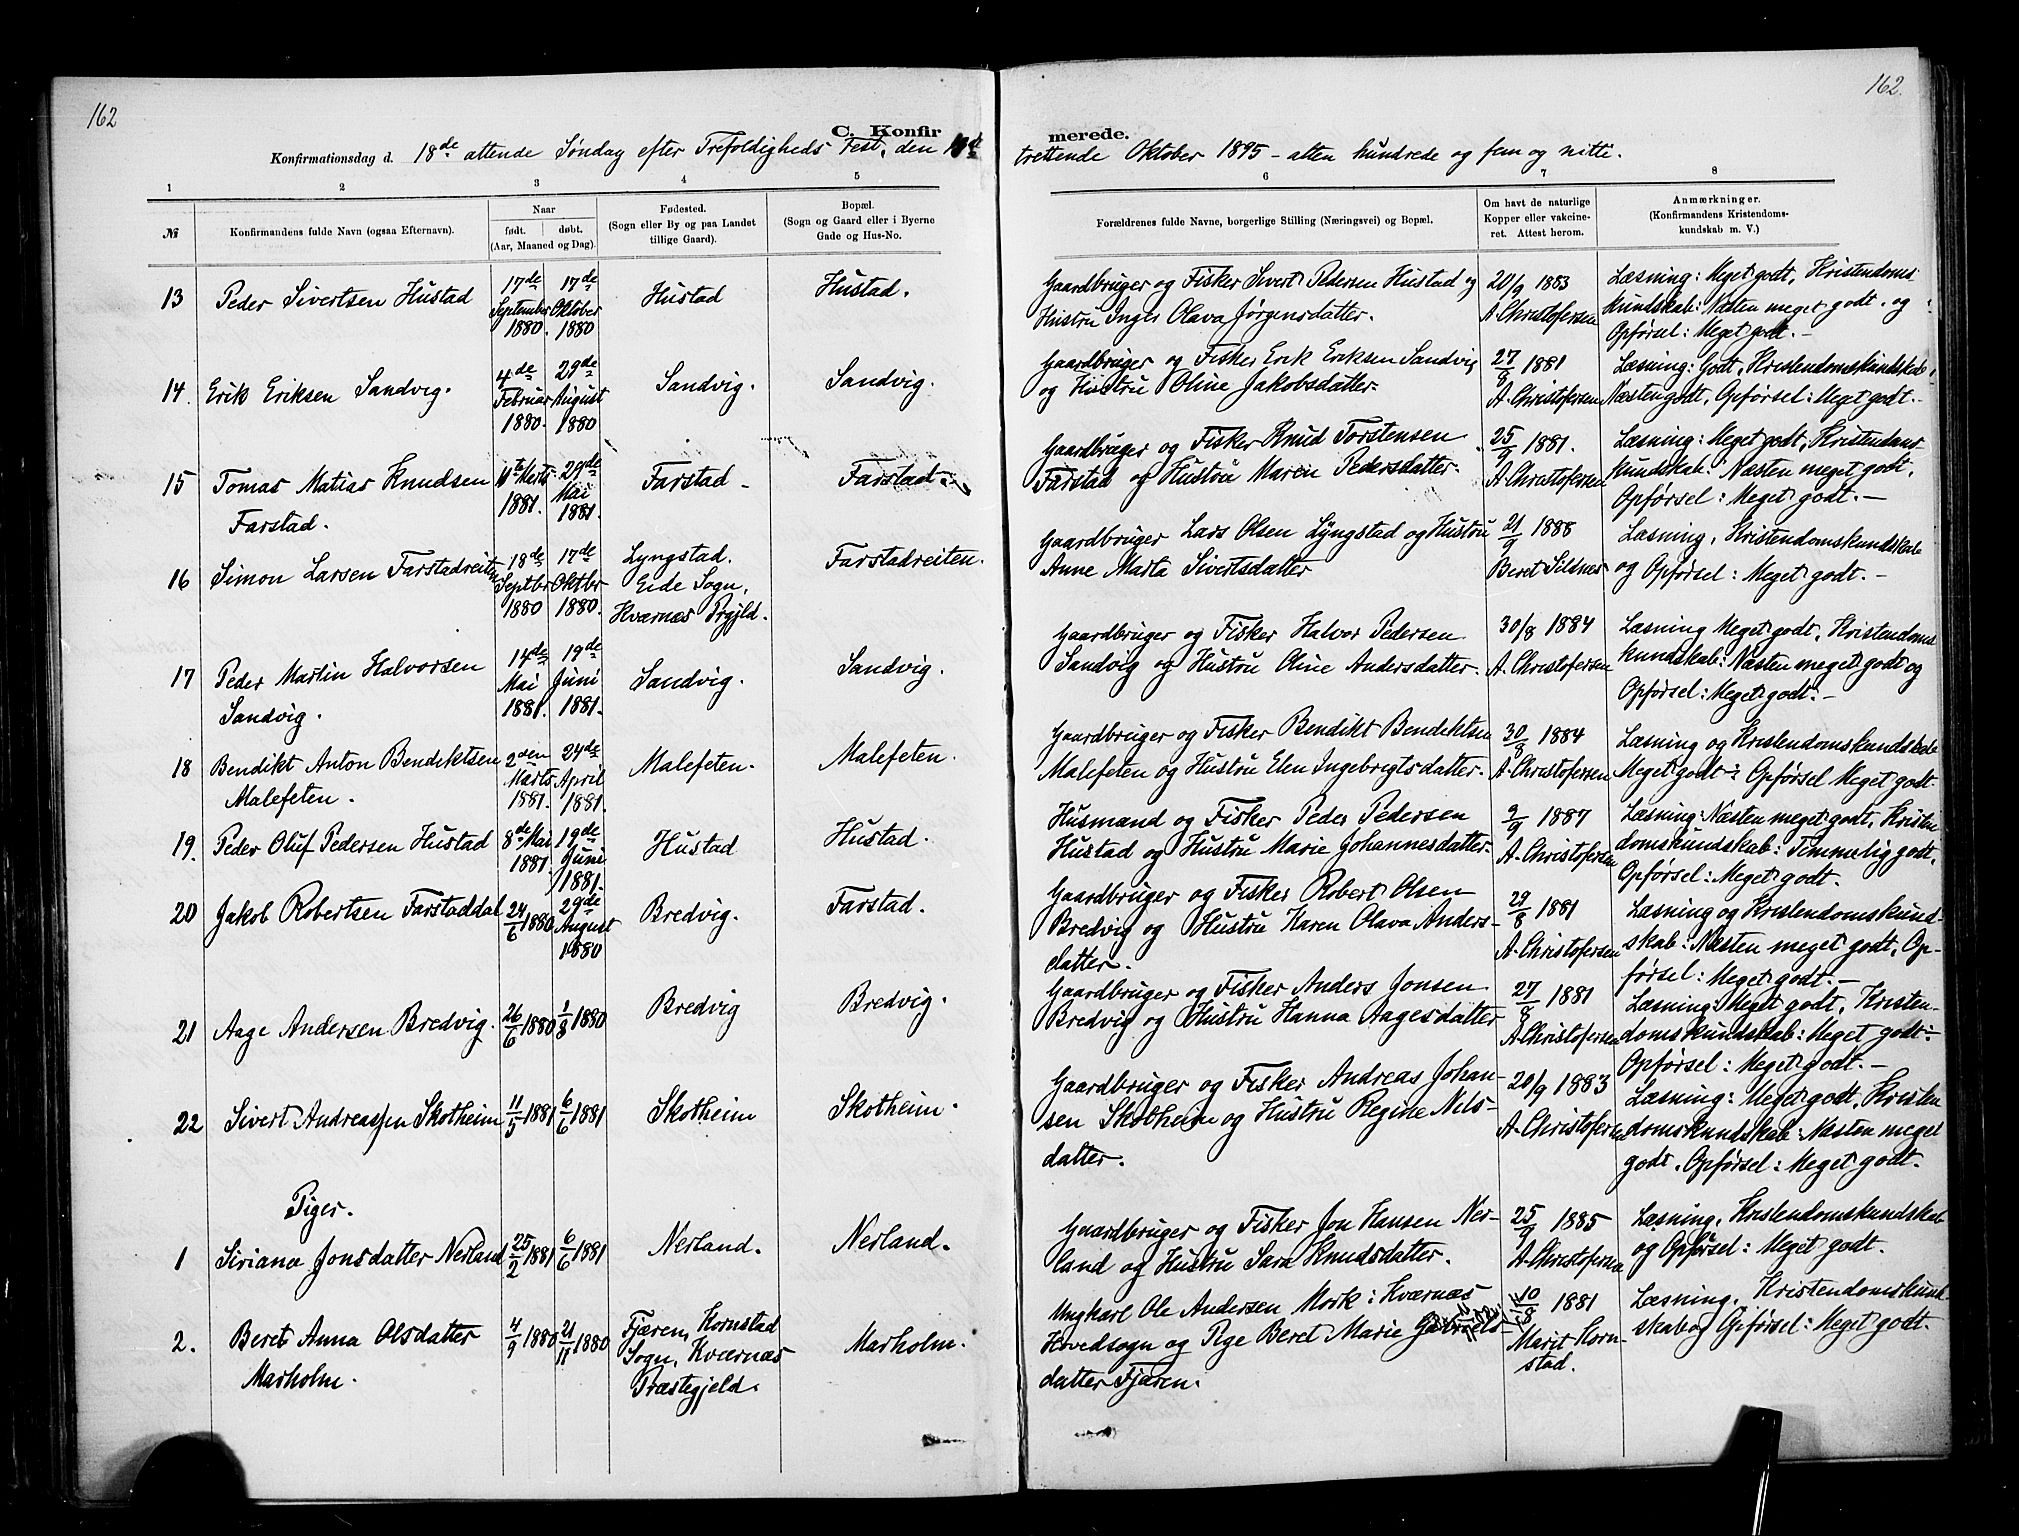 162
162.
C. Konfir merede.
Konfirmationsdag d. 18de attende Søndag efter Trefoldigheds Fest, den trettende Oktober 1895 – atten hundrede og fem og nitti.
1 2 3 4 5 6 7 8
№
Konfirmandens fulde Navn (ogsaa Efternavn).
Naar
født. døbt.
(Aar, Maaned og Dag).
Fødested.
(Sogn eller By og paa Landet
tillige Gaard).
Bopæl.
(Sogn og Gaard eller i Byerne
Gade og Hus-No.
Forældrenes fulde Navne, borgerlige Stilling (Næringsvei) og Bopæl.
Om havt de naturlige
Kopper eller vakcine-
ret. Attest herom.
Anmærkninger.
(Konfirmandens Kristendoms-
kundskab m. V.)
13 Peder Sivertsen Hustad
17de September 1880.
17de Oktober 1880
Hustad
Hustad.
Gaardbruger og Fisker Sivert Pedersen Hustad og
Hustru Inger Olava Jørgensdatter.
20/9 1883
A. Christofersen
Læsning: Meget godt, Kristendoms
kundskab: Næsten meget godt. og
Opførsel: Meget godt. –
14. Erik Eriksen Sandvig.
4de Februar 1880.
29de August 1880
Sandvig.
Sandvig.
Gaardbruger og Fisker Erik Eriksen Sandvig
og Hustru Oline Jakobsdatter.
27/8 1881
A. Christofersen
Læsning: Godt, Kristendomskundskab:
Næsten godt, Opførsel: Meget godt. –
15 Tomas Matias Knudsen
Farstad.
11te Marts 1881.
29de Mai 1881.
Farstad –
Farstad.
Gaardbruger og Fisker Knud Torstensen
Farstad og Hustru Maren Pedersdatter.
25/9 1881.
A. Christofersen
Læsning: Meget godt, Kristendoms
kundskab: Næsten meget godt,
Opførsel: Meget godt. –
16 Simon Larsen Farstadreiten
18de Septbr 1880
17de Oktbr 1880.
Lyngstad.
Eide Sogn,
Kværnæs Prgjld.
Farstadreiten.
Gaardbruger Lars Olsen Lyngstad og Hustru
Anne Marta Sivertsdatter
21/9 1888
Beret Sildnes
Læsning, Kristendomskundskab
og Opførsel: Meget godt. –
17 Peder Martin Halvorsen
Sandvig.
14de Mai 1881.
19de Juni 1881.
Sandvig.
Sandvig.
Gaardbruger og Fisker Halvor Pedersen
Sandvig og Hustru Oline Andersdatter.
30/8 1884
A. Christofersen
Læsning Meget godt, Kristendoms
kundskab: Næsten meget godt og
Opførsel: Meget godt. –
18 Bendikt Anton Bendiktsen
Malefeten.
2den Marts 1881.
24de April 1881.
Malefeten.
Malefeten.
Gaardbruger og Fisker Bendikt Bendiktsen
Malefeten og Hustru Elen Ingebrigtsdatter.
30/8 1884
A. Christofersen
Læsning og Kristendomskundskab
Meget godt: Opførsel Meget godt.
19. Peder Oluf Pedersen Hustad
8de Mai 1881.
19de Juni 1881.
Hustad
Hustad.
Husmand og Fisker Peder Pedersen
Hustad og Hustru Marie Johannesdatter.
9/9 1887
A. Christofersen
Læsning: Næsten meget godt, Kristen
domskundskab: Temmelig godt,
Opførsel: Meget godt.
20 Jakob Robertsen Farstaddal
24/6 1880
29de August 1880
Bredvig.
Farstad.
Gaardbruger og Fisker Robert Olsen
Bredvig og Hustru Karen Olava Anders-
datter.
29/8 1881
A. Christofersen
Læsning og Kristendomskund-
skab: Næsten meget godt, Op-
førsel: Meget godt. –
21 Aage Andersen Bredvig.
26/6 1880
1/8 1880
Bredvig
Bredvig.
Gaardbruger og Fisker Anders Jonsen
Bredvig og Hustru Hanna Aagesdatter
27/8 1881
A. Christofersen
Læsning: Meget godt, Kristen-
domskundskab: Meget godt:
Opførsel: Meget godt. –
22 Sivert Andreassen Skotheim
11/5 1881
6/6 1881
Skotheim
Skotheim.
Gaardbruger og Fisker Andreas Johan-
sen Skotheim og Hustru Regine Nils-
datter.
20/9 1883
A. Christofersen
Læsning: Meget godt, Kristen
domskundskab: Næsten meget
godt, Opførsel: Meget godt.
Piger.
1 Siriana Jonsdatter Nerland
25/2 1881
6/6 1881
Nerland.
Nerland.
Gaardbruger og Fisker Jon Hansen Ner-
land og Hustru Sara Knudsdatter.
25/9 1885
A. Christofersen
Læsning, Kristendomskundskab
og Opførsel: Meget godt.
2. Beret Anna Olsdatter
Marholm.
4/9 1880
21/11 1880
Fjæren, Kornstad
Sogn, Kværnæs
Præstegjeld.
Marholm.
Ungkarl Ole Andersen Mork: Kværnæs
Hovedsogn og Pige Beret Marie
datter Fjæren.
10/8 1881
Marit Korn-
stad.
Læsning, Kristendomskund
skab og Opførsel: Meget godt.